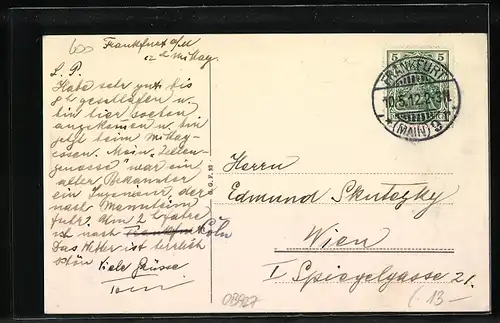 600
Frankfurt a/M
Mittag.
L. P.
Habe sehr gut bis
geschlafen u.
bin hier soeben
angekommen u. bin
jetzt beim Mittag-
essen. Mein "Zellen-
genosse" war ein
alter Bekannter
ein Ingenieur, der
nach Mannheim
fuhr. Um 2 fahre
ich nach Frankfurt Cöln
Das Wetter ist herrlich
schön Viele Grüsse
5 5
FRANKFURT
10.5.12.
* (MAIN) 9 *
Herrn
Edmund Skutezky
Wien
I Spiegelgasse 21.
13-